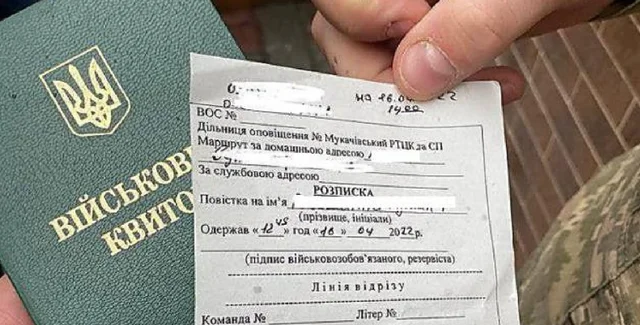 ВІЙСЬКОВ
КВИТО
на 16.04 22
14 00
ВОС №
Дільниця оповіщення № Мукачівський РТЦК да СП
Маршрут за домашньою адресою
За службовою адресою
РОЗПИСКА
Повістка на ім'я
(прізвище, ініціали)
Одержав «12 45» год «16» 04 2022р.
(підпис військовозобов'язаного, резервіста)
Лінія відрізу
Команда № Літер №